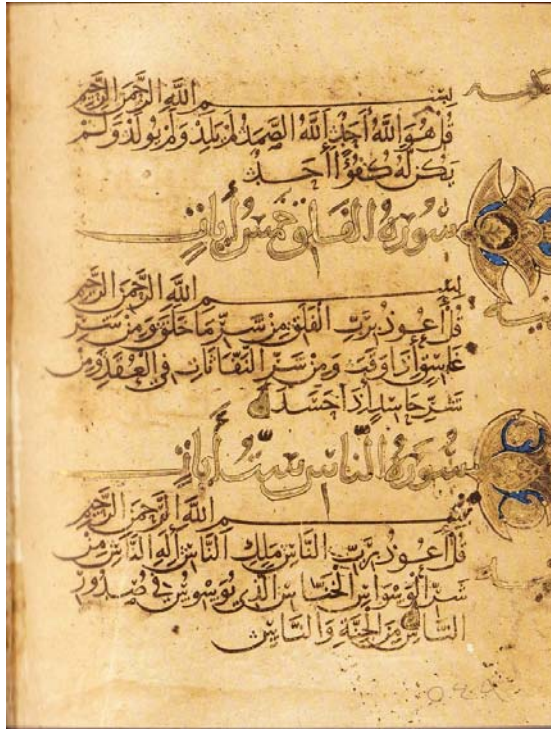 بسم الله الرحمن الرحيم
قل هو الله أحد الله الصمد لم يلد ولم يولد ولم
يكن له كفؤا أحد
سورة الفلق خمس أيات
بسم الله الرحمن الرحيم
قل أعوذ برب الفلق من شر ما خلق ومن شر
غاسق إذا وقب ومن شر النفاثات في العقد ومن
شر حاسد إذا حسد
سورة الناس ست أيات
بسم الله الرحمن الرحيم
قل أعوذ برب الناس ملك الناس إله الناس من
شر الوسواس الخناس الذي يوسوس في صدور
الناس من الجنة والناس